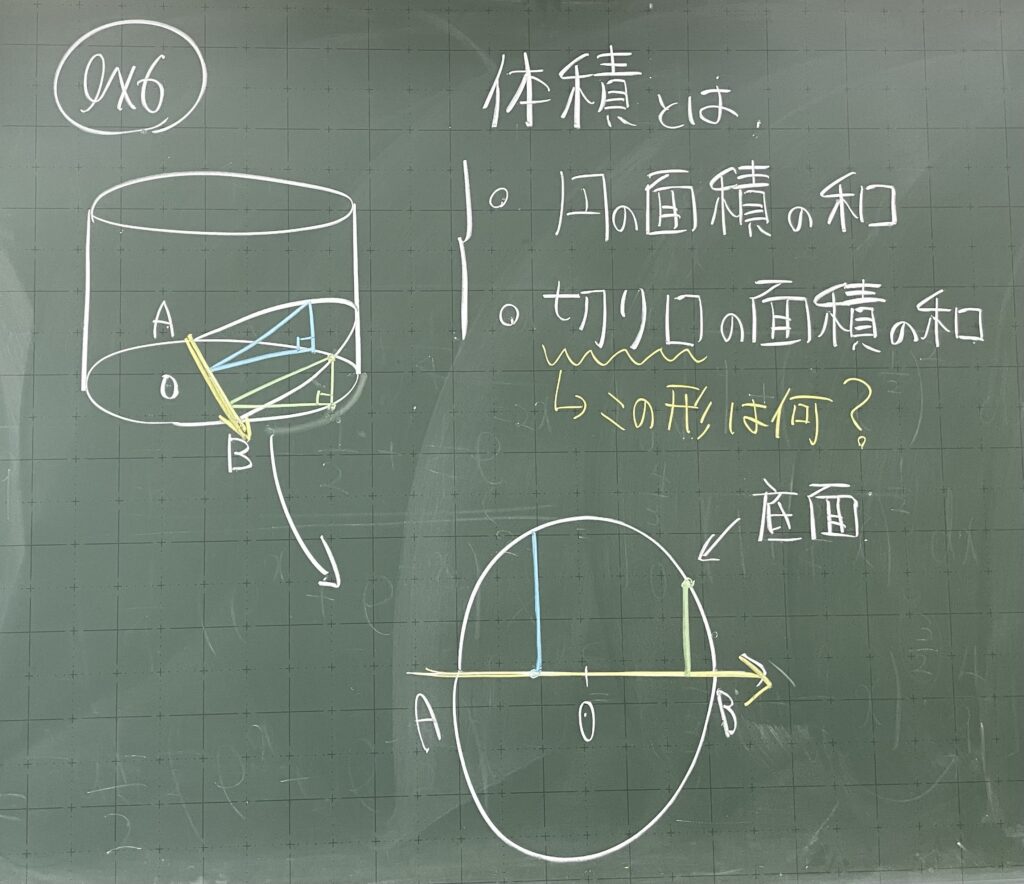 ex6
体積とは、
・円の面積の和
・切り口の面積の和
↳この形は何?
A
O
B
底面
A
O
B